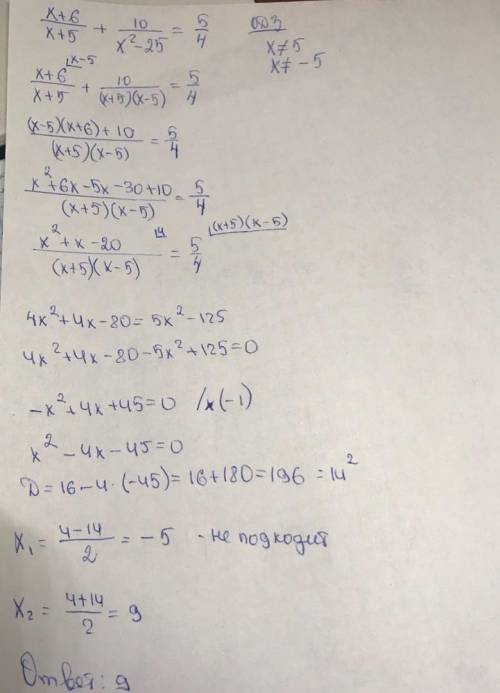 (x+6)/(x+5) + 10/(x²-25) = 5/4   ОДЗ
x≠5
x≠-5
(x+6)/(x+5) ⌈x-5 + 10/((x+5)(x-5)) = 5/4
((x-5)(x+6)+10)/((x+5)(x-5)) = 5/4
(x²+6x-5x-30+10)/((x+5)(x-5)) = 5/4
(x²+x-20)/((x+5)(x-5)) ⌈4 = 5/4 ⌈(x+5)(x-5)
4x²+4x-80=5x²-125
4x²+4x-80-5x²+125=0
-x²+4x+45=0 /x(-1)
x²-4x-45=0
D=16-4·(-45)=16+180=196=14²
x₁=(4-14)/2=-5 - не подходит
x₂=(4+14)/2=9
Ответ: 9